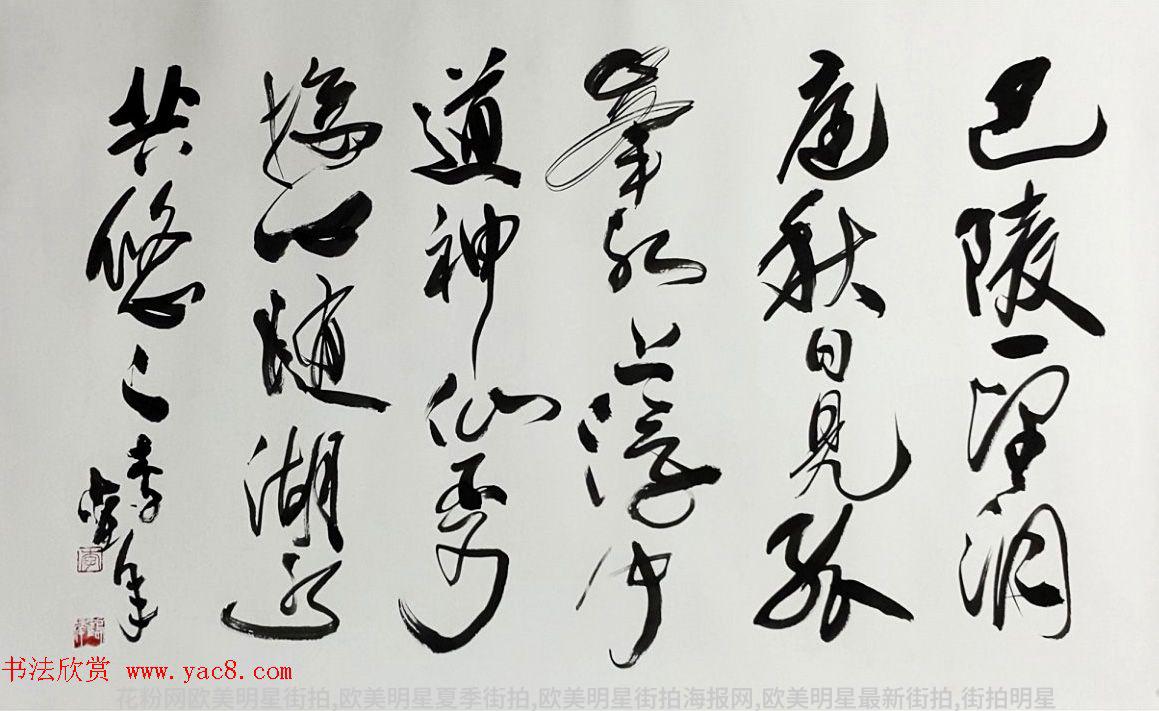 巴陵一望洞
庭秋日見孤
峯水上浮闻
道神仙不可
接心随湖水
共悠々
书法欣赏 www.yac8.com
花粉网欧美明星街拍,欧美明星夏季街拍,欧美明星街拍海报网,欧美明星最新街拍,街拍明星